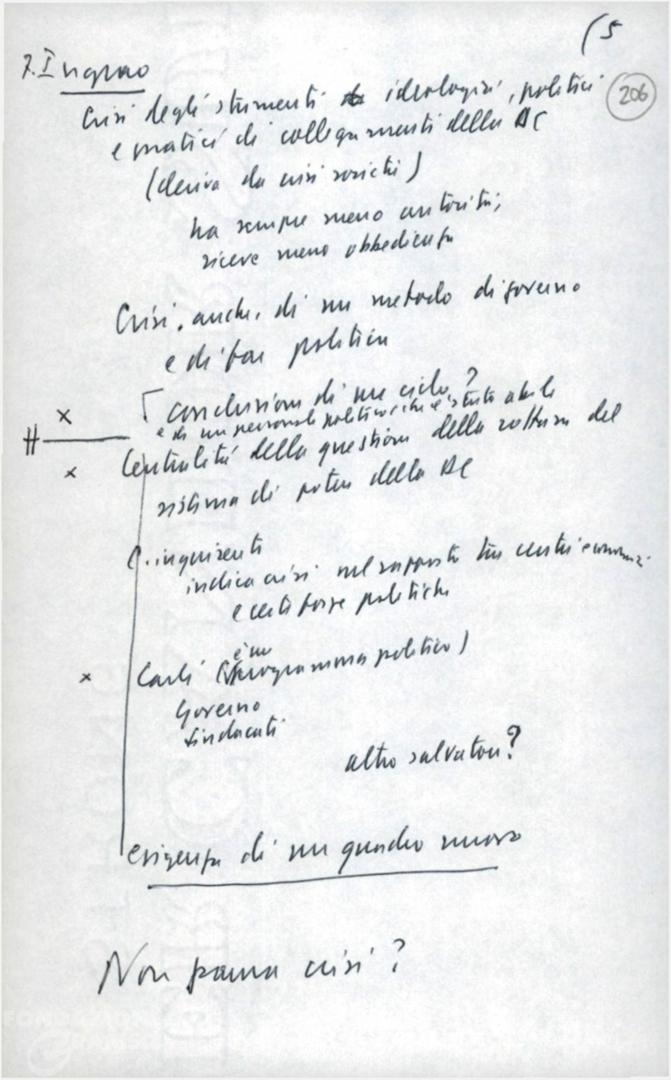 (5
206
7. Ingrao
Crisi degli strumenti ideologici, politici
e pratici di collegamenti della DC
(deriva da crisi società)
ha sempre meno autorità;
riceve meno obbedienza
Crisi, anche, di un metodo di governo
e di far politica
conclusione di un ciclo?
e di un personale politico che è stato abile
Centralità della questione della rottura del
sistema di potere della DC
C. inquirenti
indica crisi nel rapporto tra centri economici
e certe forze politiche
Carli (è un programma politico)
Governo
Sindacati
altro salvatore?
esigenza di un quadro nuovo
Non paura crisi?
FONDAZIONE
GRAMSCI